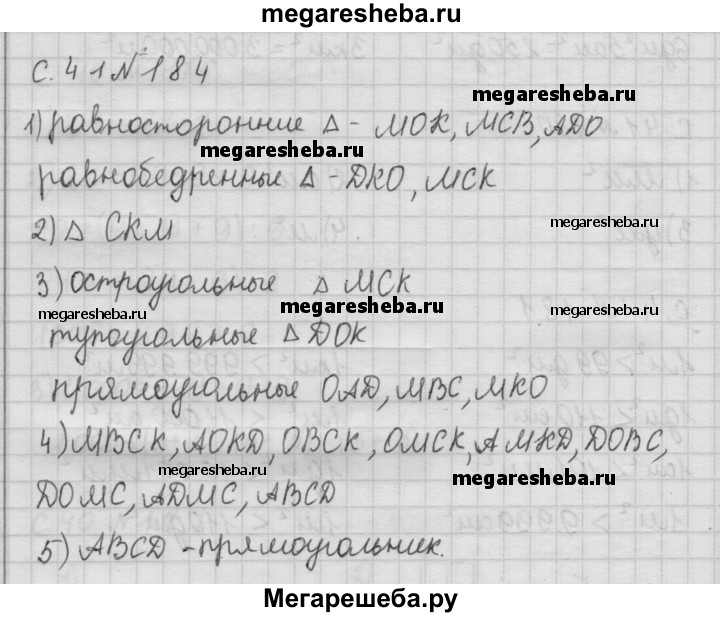 megaresheba.ru
С. 41 № 184
megaresheba.ru
1) равносторонние Δ - МОК, МСВ, АDО
megaresheba.ru
равнобедренные Δ - DКО, МСК
2) Δ СКМ
megaresheba.ru
3) остроугольные Δ МСК
megaresheba.ru megaresheba.ru
тупоугольные Δ DОК
megaresheba.ru
прямоугольные ОАD, МВС, МКО
4) МВСК, АОКD, ОВСК, ОМСК, АМКD, DОВС,
megaresheba.ru megaresheba.ru
DОМС, АDМС, АВСD
5) АВСD - прямоугольник.
Мегарешеба.ру